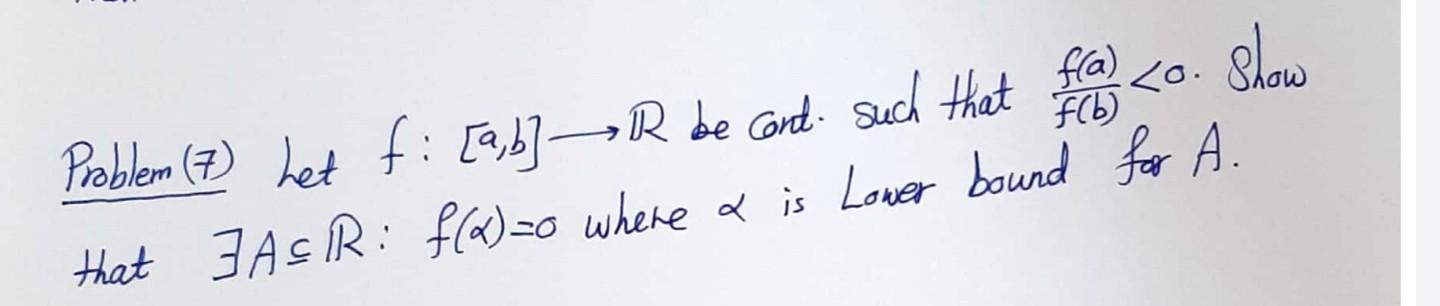 Problem (7) Let f : [a,b] → ℝ be cont. such that f(a)/f(b) <0. Show
that ∃A⊆ℝ : f(α)=0 where α is Lower bound for A.